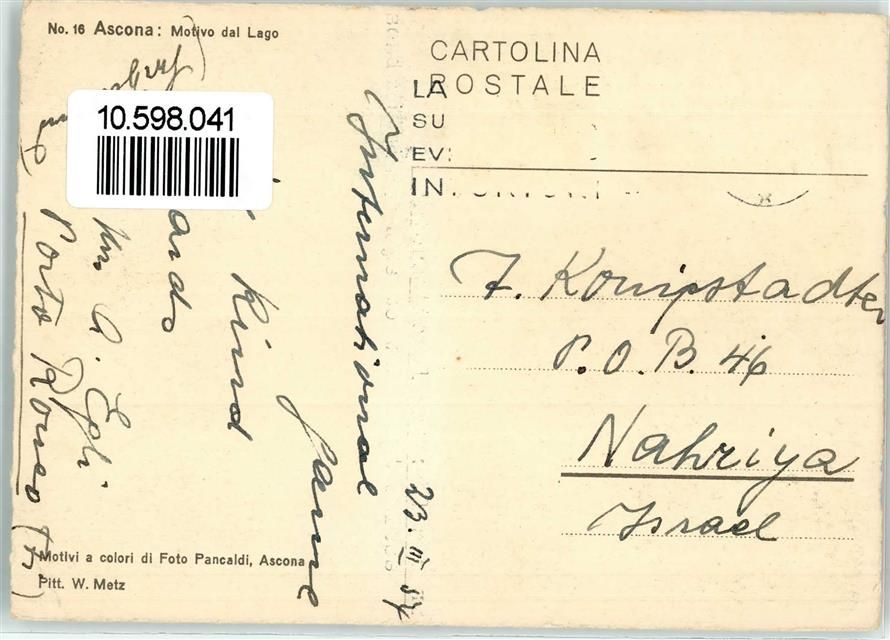 No. 16 Ascona: Motivo dal Lago
CARTOLINA
POSTALE
LA
SU
EV
IN
10.598.041
International
Game
Kind
ards
A. Egli
Porto Ronco
23. III 54
J. Konigstadter
P.O.B. 46
Nahriya
Israel
Motivi a colori di Foto Pancaldi, Ascona
Pitt. W. Metz